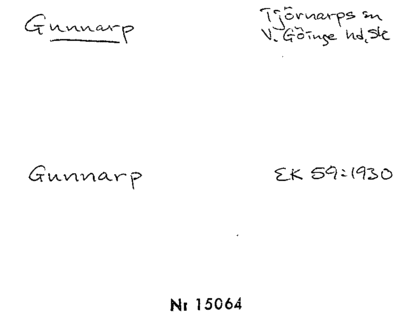 Gunnarp
Tjörnarps sn
V. Göinge hd, Sk
Gunnarp
EK 59:1930
Nr 15064